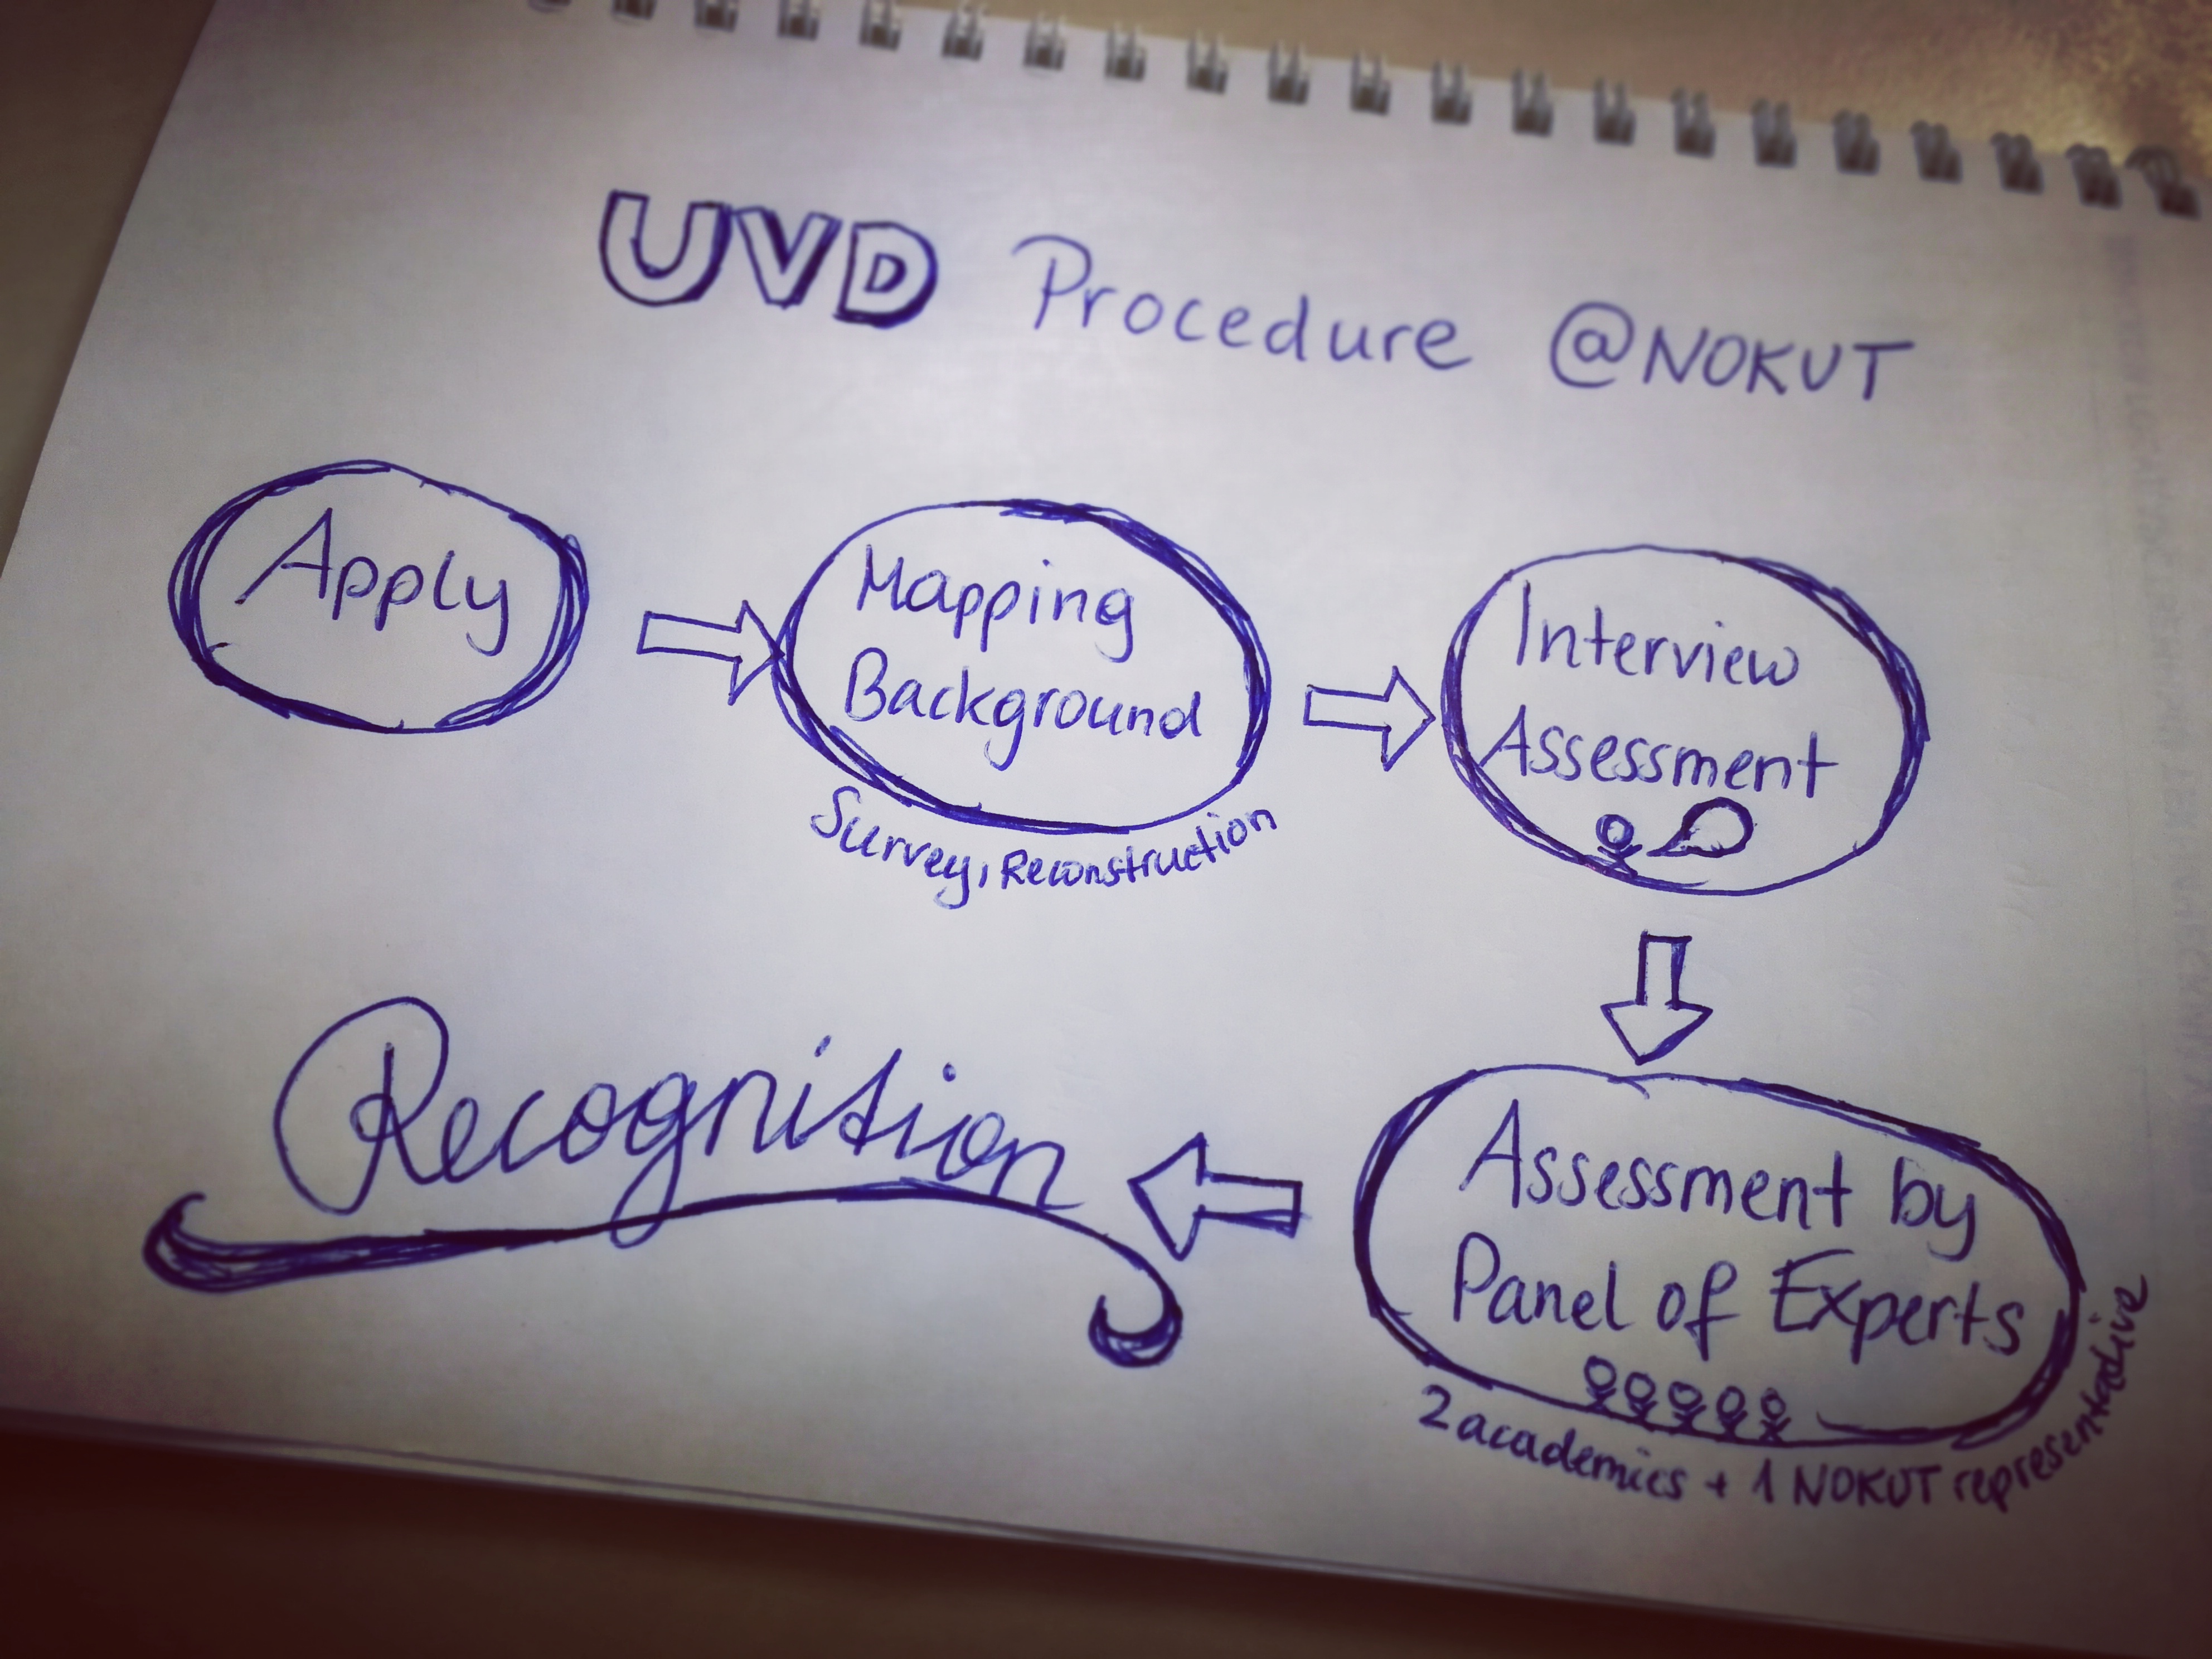 UVD Procedure @NOKUT
Apply
Mapping
Background
Survey, Reconstruction
Interview
Assessment
Assessment by
Panel of Experts
2 academics + 1 NOKUT representative
Recognition